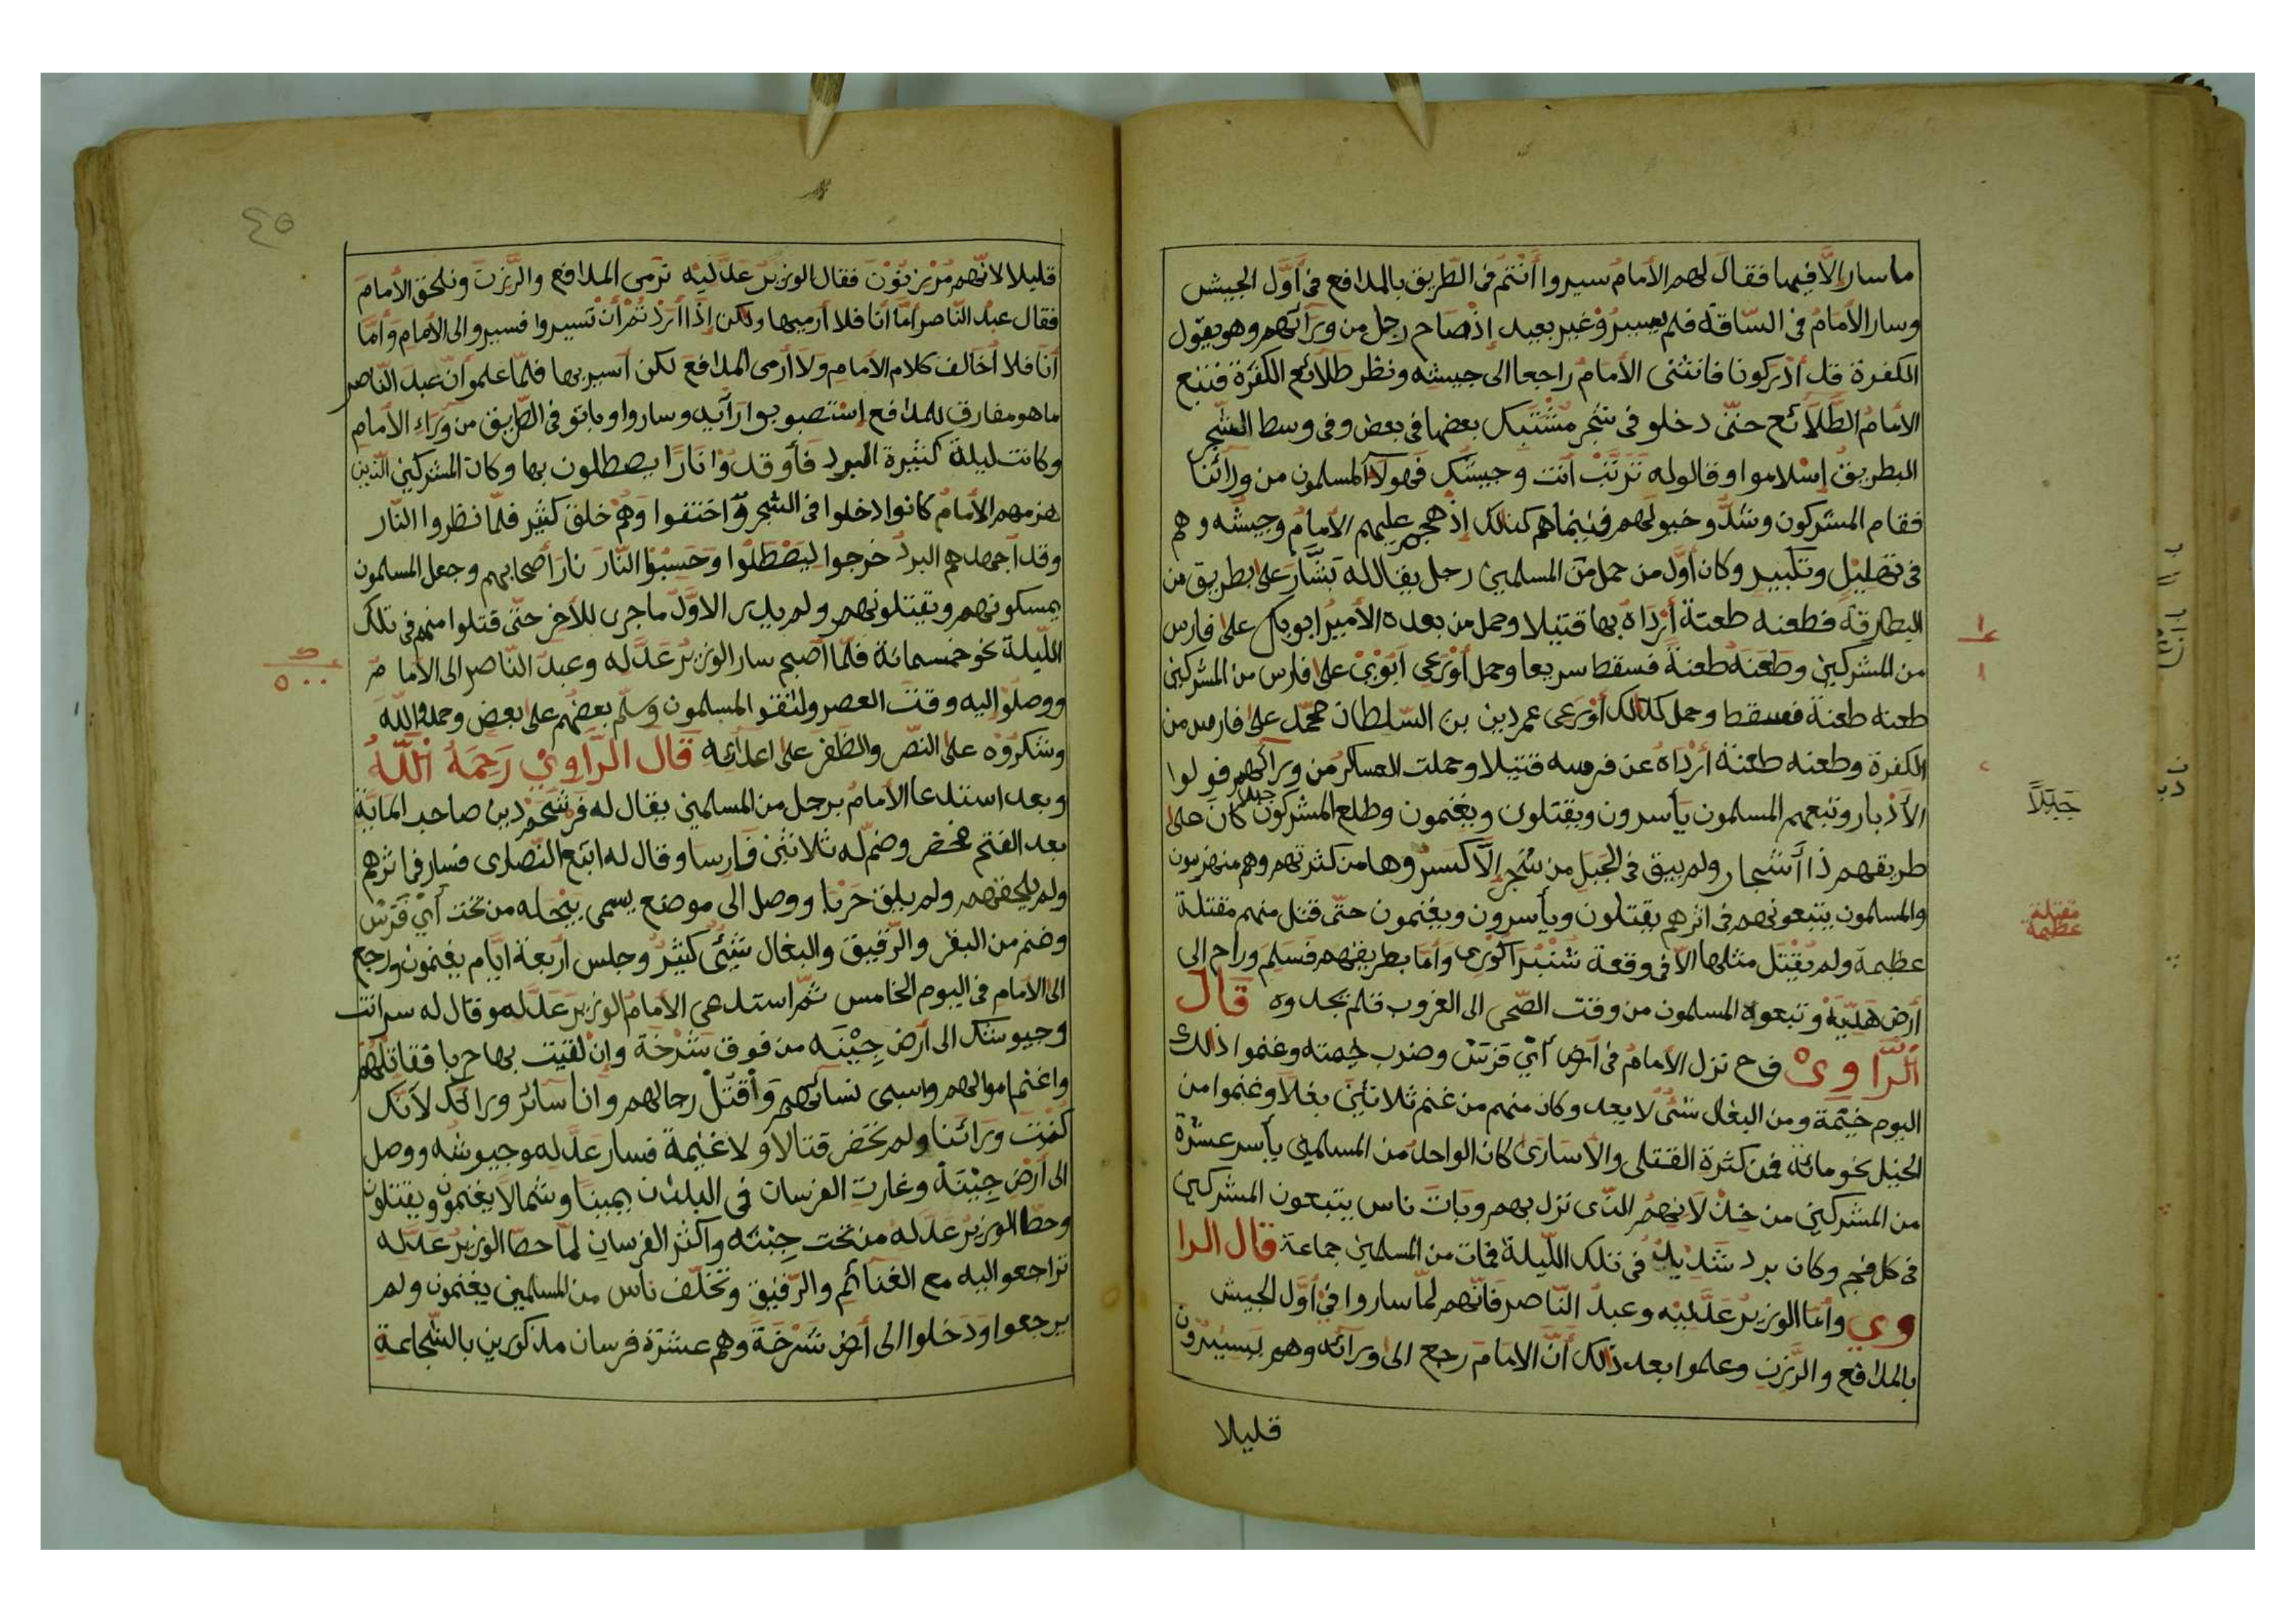 ما سار إلّا فيها فقال لهم الأمام سيروا أنتم فى الطّريق بالمدافع فى أوّل الجيش
وسار الأمام فى السّاقة فلم يسير غير بعيد إذ صاح رجل من ورائهم وهو يقول
الكفرة قد أدركونا فانثنى الأمام راجعا الى جيشه ونظر طلائع الكفرة فتبع
الأمام الطّلائع حتّى دخلو فى شجر مشتبك بعضها فى بعض وفى وسط الشّجر
البطريق إسلامو او قالوله ترتّب أنت وجيشك فهولآ المسلمون من ورائنا
فقام المشركون وشدّو خيولهم فبينماهم كذلك إذ هجم عليهم الأمام وجيشه وهم
فى تهليل وتكبير وكان أوّل من حمل من المسلمين رجل يقال له بشّار على بطريق من
البطارقة فطعنه طعنة أرداه بها قتيلا وحمل من بعده الأمير ابوبكر على فارس
من المشركين وطعنه طعنة فسقط سريعا وحمل أورعى أبوبى على فارس من المشركين
طعنه طعنة فسقط وحمل كذالك أورعى عمردين بن السّلطان محمّد على فارس من
الكفرة وطعنه طعنة أرداه عن فرسه قتيلا وحملت العساكر من ورائهم فولوا
الأدبار وتبعهم المسلمون يأسرون ويقتلون ويغنمون وطلع المشركون جبلا كان على
طريقهم ذا أشجار ولم يبق فى الجبل من شجر إلّا كسروها من كثرتهم وهم منهزمون
والمسلمون يتبعونهم فى اثرهم يقتلون ويأسرون ويغنمون حتّى قتل منهم مقتلة
عظيمة ولم يقتل مثلها الّا فى وقعة شنبرا كورى وأما بطريقهم فسلم وراح الى
أرض هديّة وتبعوه المسلمون من وقت الضّحى الى الغروب فلم يجدوه قال
الرّاوى فح نزل الأمام فى أرض أي قرش وضرب خيمته وغنموا ذالك
اليوم خيمة ومن البغال شئ لا يعد وكان منهم من غنم ثلاثين بغلا وغنموا من
الخيل نحو مائة فمن كثرة القتلى والأسارى كان الواحد من المسلمين يأسر عشرة
من المشركين من خذلانهم الّذى نزل بهم وبات ناس يتبعون المشركين
فى كل فجم وكان برد شديد فى تلك اللّيلة فمات من المسلمين جماعة قال الرا
وي وأما الوزير عدّليه وعبد النّاصر فانّهم لمّا ساروا في أوّل الجيش
بالمدافع والرّزن وعلموا بعد ذالك أنّ الامام رجع الى ورائه وهم يسيرون
قليلا
جبلاً
مقتلة
عظيمة
٤٥
قليلا لانّهم مرزبّون فقال الوزير عدّليه نرمى المدافع والرّزن ونلحق الأمام
فقال عبد النّاصر أمّا أنا فلا أرميها ولكن إذا أردتم أن تسيروا فسيروا الى الأمام وأمّا
أنا فلا أخالف كلام الأمام ولا أرمى المدافع لكن أسير بها فلمّا علمو أنّ عبد النّاصر
ما هو مفارق للمدافع إستصوبوا رأيه وساروا وباتو فى الطّريق من وراء الأمام
وكانت ليلة كثيرة البرد فأوقدوا نارًا يصطلون بها وكان المشركين الّذين
هزمهم الأمام كانوا دخلوا فى الشجر واختفوا وهم خلق كثير فلمّا نظروا النّار
وقد أجهدهم البرد خرجوا ليصطلوا وحسبوا النّار نار أصحابهم وجعل المسلمون
يمسكونهم ويقتلونهم ولم يدر الاوّل ما جرى للأخر حتّى قتلوا منهم فى تلك
اللّيلة نحو خمسمائة فلمّا أصبح سار الوزير عدّله وعبد النّاصر الى الأمام
ووصلو إليه وقت العصر ولتقو المسلمون وسلّم بعضهم على بعض وحمدو اللّه
وشكروه على النصر والظفر على اعدائه قال الرّاوي رحمه اللّه
وبعد استدعا الأمام برجل من المسلمين يقال له فرشحم دين صاحب الماية
بعد الفتح فحضر وضمّ له ثلاثين فارسا وقال له اتبع النّصارى فسار فى اثرهم
ولم يلحقهم ولم يلق حربا ووصل الى موضع يسمى بجله من تحت أي قرش
وغنم من البقر والرّقيق والبغال شئ كثير وجلس أربعة ايّام يغنمون ورجع
الى الأمام فى اليوم الخامس ثمّ استدعى الأمام الوزير عدّله وقال له سر انت
وجيوشك الى أرض جبنه من فوق شرخة وإن لقيت بها حربا فقاتلهم
واغنم اموالهم واسبى نسائهم وأقتل رجالهم وانا سائر ورائك لأنّك
كنت ورائنا ولم تحضر قتالا ولا غنيمة فسار عدّله وجيوشه ووصل
الى أرض جبنة وغارت الفرسان فى البلدان يمينا وشمالا يغنمون ويقتلون
وحطّ الوزير عدّله من تحت جبنه واكثر الفرسان لمّا حطّ الوزير عدّله
تراجعوا اليه مع الغنائم والرّقيق وتخلّف ناس من المسلمين يغنمون ولم
يرجعوا ودخلوا الى أرض شرخة وهم عشرة فرسان مذكورين بالشّجاعة
٥٠٠